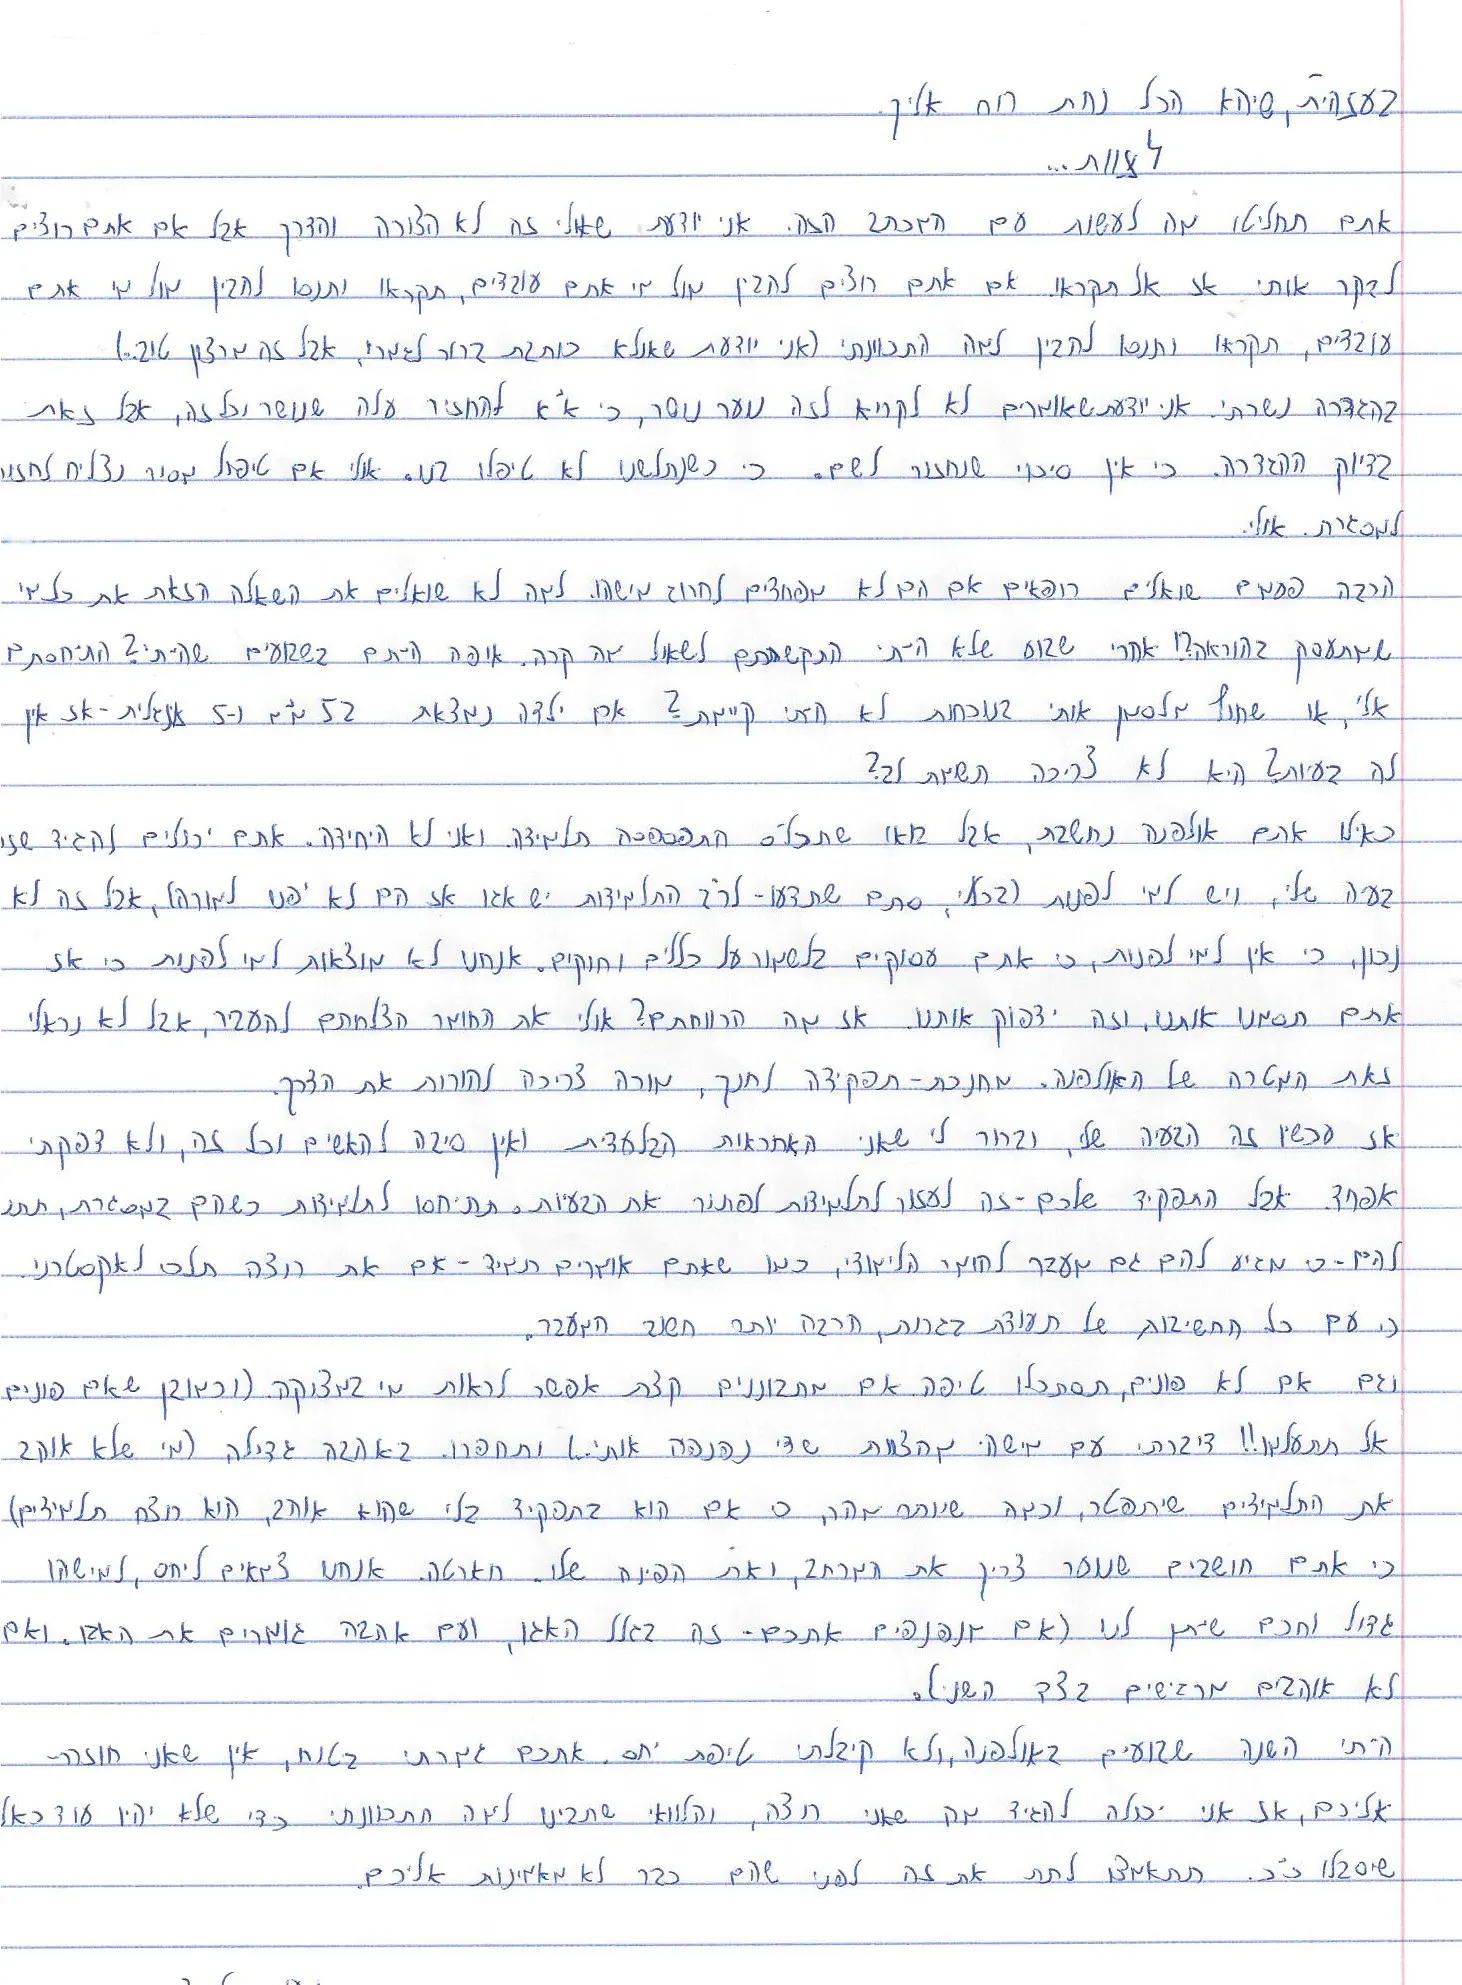 בעזהי״ת, שיהא הכל נחת רוח אליך.
לצוות...
אתם תחליטו מה לעשות עם המכתב הזה. אני יודעת שאולי זה לא הצורה והדרך אבל אם אתם רוצים
לבקר אותי אז אל תקראו. אם אתם רוצים להבין מול מי אתם עובדים, תקראו ותנסו להבין מול מי אתם
עובדים, תקראו ותנסו להבין למה התכוונתי (אני יודעת שאולא כותבת ברור לגמרי, אבל זה מרצון טוב.)
בהגדרה נשרתי. אני יודעת שאומרים לא לקרוא לזה נוער נושר, כי א״א להחזיר עלה שנושר וכל זה, אבל זאת
בדיוק ההגדרה. כי אין סיכוי שנחזור לשם. כי כשנתלשנו לא טיפלו בנו. אולי אם טיפול מסור נצליח לחזור
למסגרת. אולי.
הרבה פעמים שואלים רופאים אם הם לא מפחדים להרוג מישהו. למה לא שואלים את השאלה הזאת את כל מי
שמתעסק בהוראה?! אחרי שבוע שלא הייתי התקשרתם לשאול מה קרה. איפה הייתם בשבועים שהייתי? התיחסתם
אלי, או שחוץ מלסמן אותי בנוכחות לא הייתי קיימת? אם ילדה נמצאת ב5 מ״מ ו-5 אנגלית - אז אין
לה בעיות? היא לא צריכה תשומת לב?
כאילו אתם אולפנה נחשבת, אבל בואו שתכל׳ס התפספסה תלמידה. ואני לא היחידה. אתם יכולים להגיד שזו
בעיה שלי, ויש למי לפנות (בכללי, סתם שתדעו- לרב התלמידות יש אגו אז הם לא יפנו למורה), אבל זה לא
נכון, כי אין למי לפנות, כי אתם עסוקים בלשמור על כללים וחוקים. אנחנו לא מוצאות למי לפנות כי אז
אתם תסמנו אותנו, וזה ידפוק אותנו. אז מה הרווחתם? אולי את החומר הצלחתם להעביר, אבל לא נראלי
זאת המטרה של האולפנה. מחנכת- תפקידה לחנך, מורה צריכה להורות את הדרך.
אז עכשיו זה הבעיה שלי, וברור לי שאני האחראות הבלעדית ואין סיבה להאשים וכל זה, ולא דפקתי
אפחד. אבל התפקיד שלכם - זה לעזור לתלמידות לפתור את הבעיות. תתיחסו לתלמידות כשהם במסגרת, תתנו
להם - כי מגיע להם גם מעבר לחומר הלימודי, כמו שאתם אומרים תמיד - אם את רוצה תלכי לאקסטרני.
כי עם כל החשיבות של תעודת בגרות, הרבה יותר חשוב המעבר.
וגם אם לא פונים, תסתכלו טיפה. אם מתבוננים קצת אפשר לראות מי במצוקה. (וכמובן שאם פונים
אל תתעלמו!! דיברתי עם מישהי מהצוות שדי נפנפה אותי.) ותחפרו. באהבה גדולה (מי שלא אוהב
את התלמידים שיתפטר, וכמה שיותר מהר, כי אם הוא בתפקיד בלי שהוא אוהב, הוא רוצח תלמידים)
כי אתם חושבים שנוער צריך את המרחב, ואת הפינה שלו. חארטה. אנחנו צמאים ליחס, למישהו
גדול וחכם שיתן לנו (אם מנפנפים אתכם - זה בגלל האגו, ועם אהבה גומרים את האגו. ואם
לא אוהבים מרגישים בצד השני).
הייתי השנה שבועים באולפנה, ולא קיבלתי טיפת יחס. אתכם גמרתי בטוח, אין שאני חוזרת-
אליכם, אז אני יכולה להגיד מה שאני רוצה, והלוואי שתבינו למה התכוונתי כדי שלא יהיו עוד כאלו
שיסבלו כ״כ. תתאמצו לתת את זה לפני שהם כבר לא מאמינות אליכם.